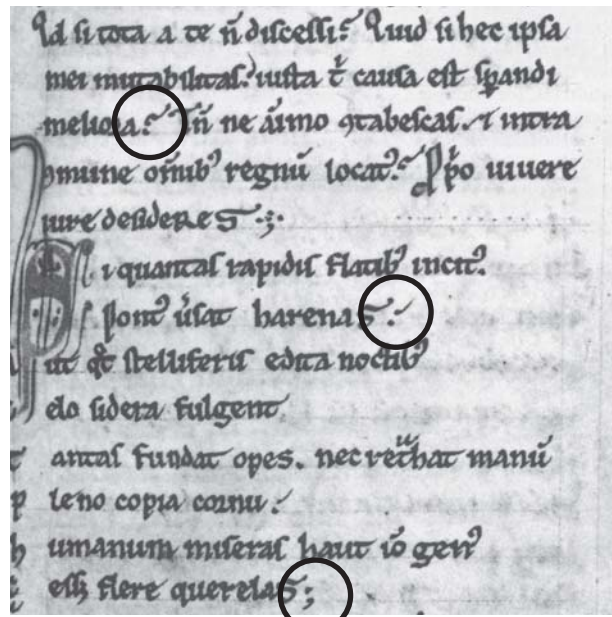 Qd si tota a te n̄ discessi? Quid si hec ipsa
mei mutabilitas. iusta t̄ causa est sꝑandi
meliora. Tn̄ ne aı̄mo ꝯtabescas. ⁊ intra
ꝯmune om̄ib⁹ regnū locat⁹. ꝓpⁱo uiuere
iure desideres.
i quantas rapidis flatib⁹ incit⁹.
Pont⁹ u̓sat harenas.
ut qͦt stelliferis edita noctib⁹
elo sidera fulgent.
antas fundat opes. nec ret̾hat manū
leno copia cornu.
umanum miseras haut iō gen⁹
essꝫ flere querelas;